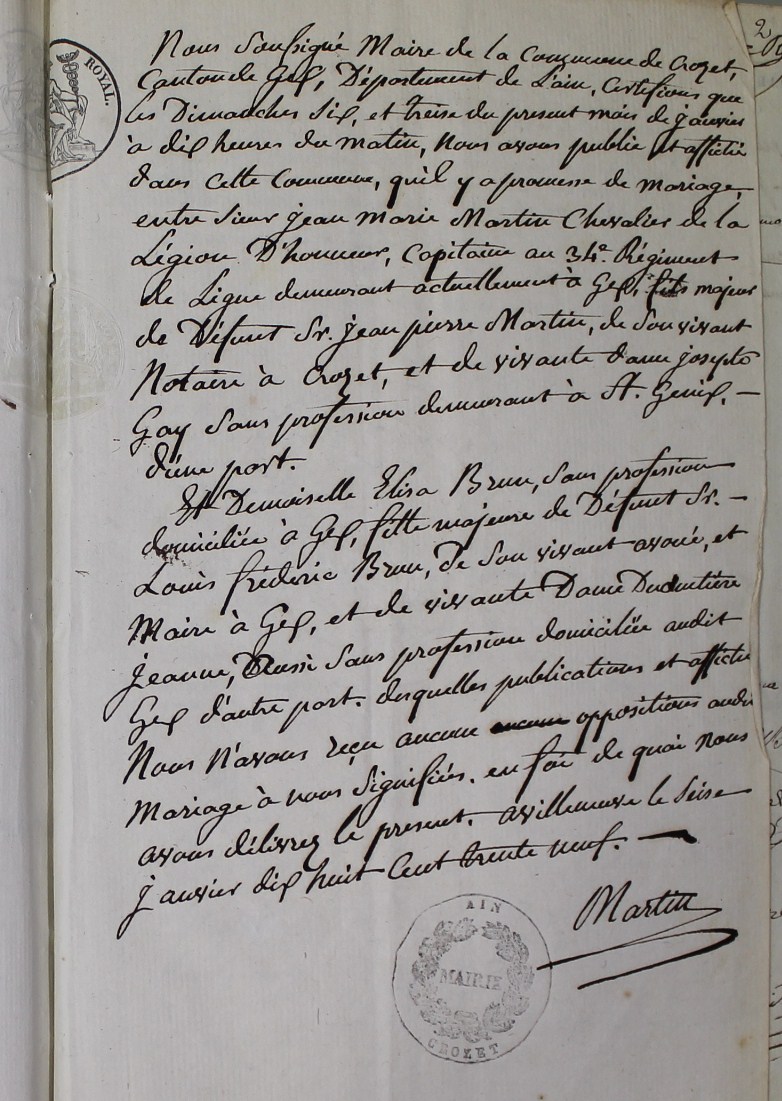 ROYAL.
Nous Soussigné Maire de la Commune de Crozet,
Canton de Gex, Département de L'ain, Certifions que
les Dimanches Six, et treise du present mois de janvier
à dix heures du matin, Nous avons publié et affiché
dans Cette Commune, qu'il y a promesse de mariage,
entre Sieur jean marie Martin Chevalier de la
Légion D'honneur, Capitaine au 34e. Régiment
de Ligne demeurant actuellement à Gex, fils majeur
de Défunt Sr. jean pierre Martin, de Son vivant
Notaire à Crozet, et de vivante dame josepte
Gay Sans profession demeurant à St. Genix, —
d'une part.
Et Demoiselle Elisa Brun, Sans profession
domiciliée à Gex, fille majeure de Défunt Sr. —
Louis fréderic Brun, De Son vivant avoué, et
Maire à Gex, et de vivante Dame
jeanne, Aussi Sans profession domiciliée audit
Gex d'autre part. desquelles publications et affiche
Nous N'avons reçu aucune oppositions audit
Mariage à nous Signifiées. en foi de quoi Nous
avons délivrez le present. a villeneuve le Seise
janvier dix huit Cent trente neuf. —
Martin
AIN
MAIRIE
CROZET
2